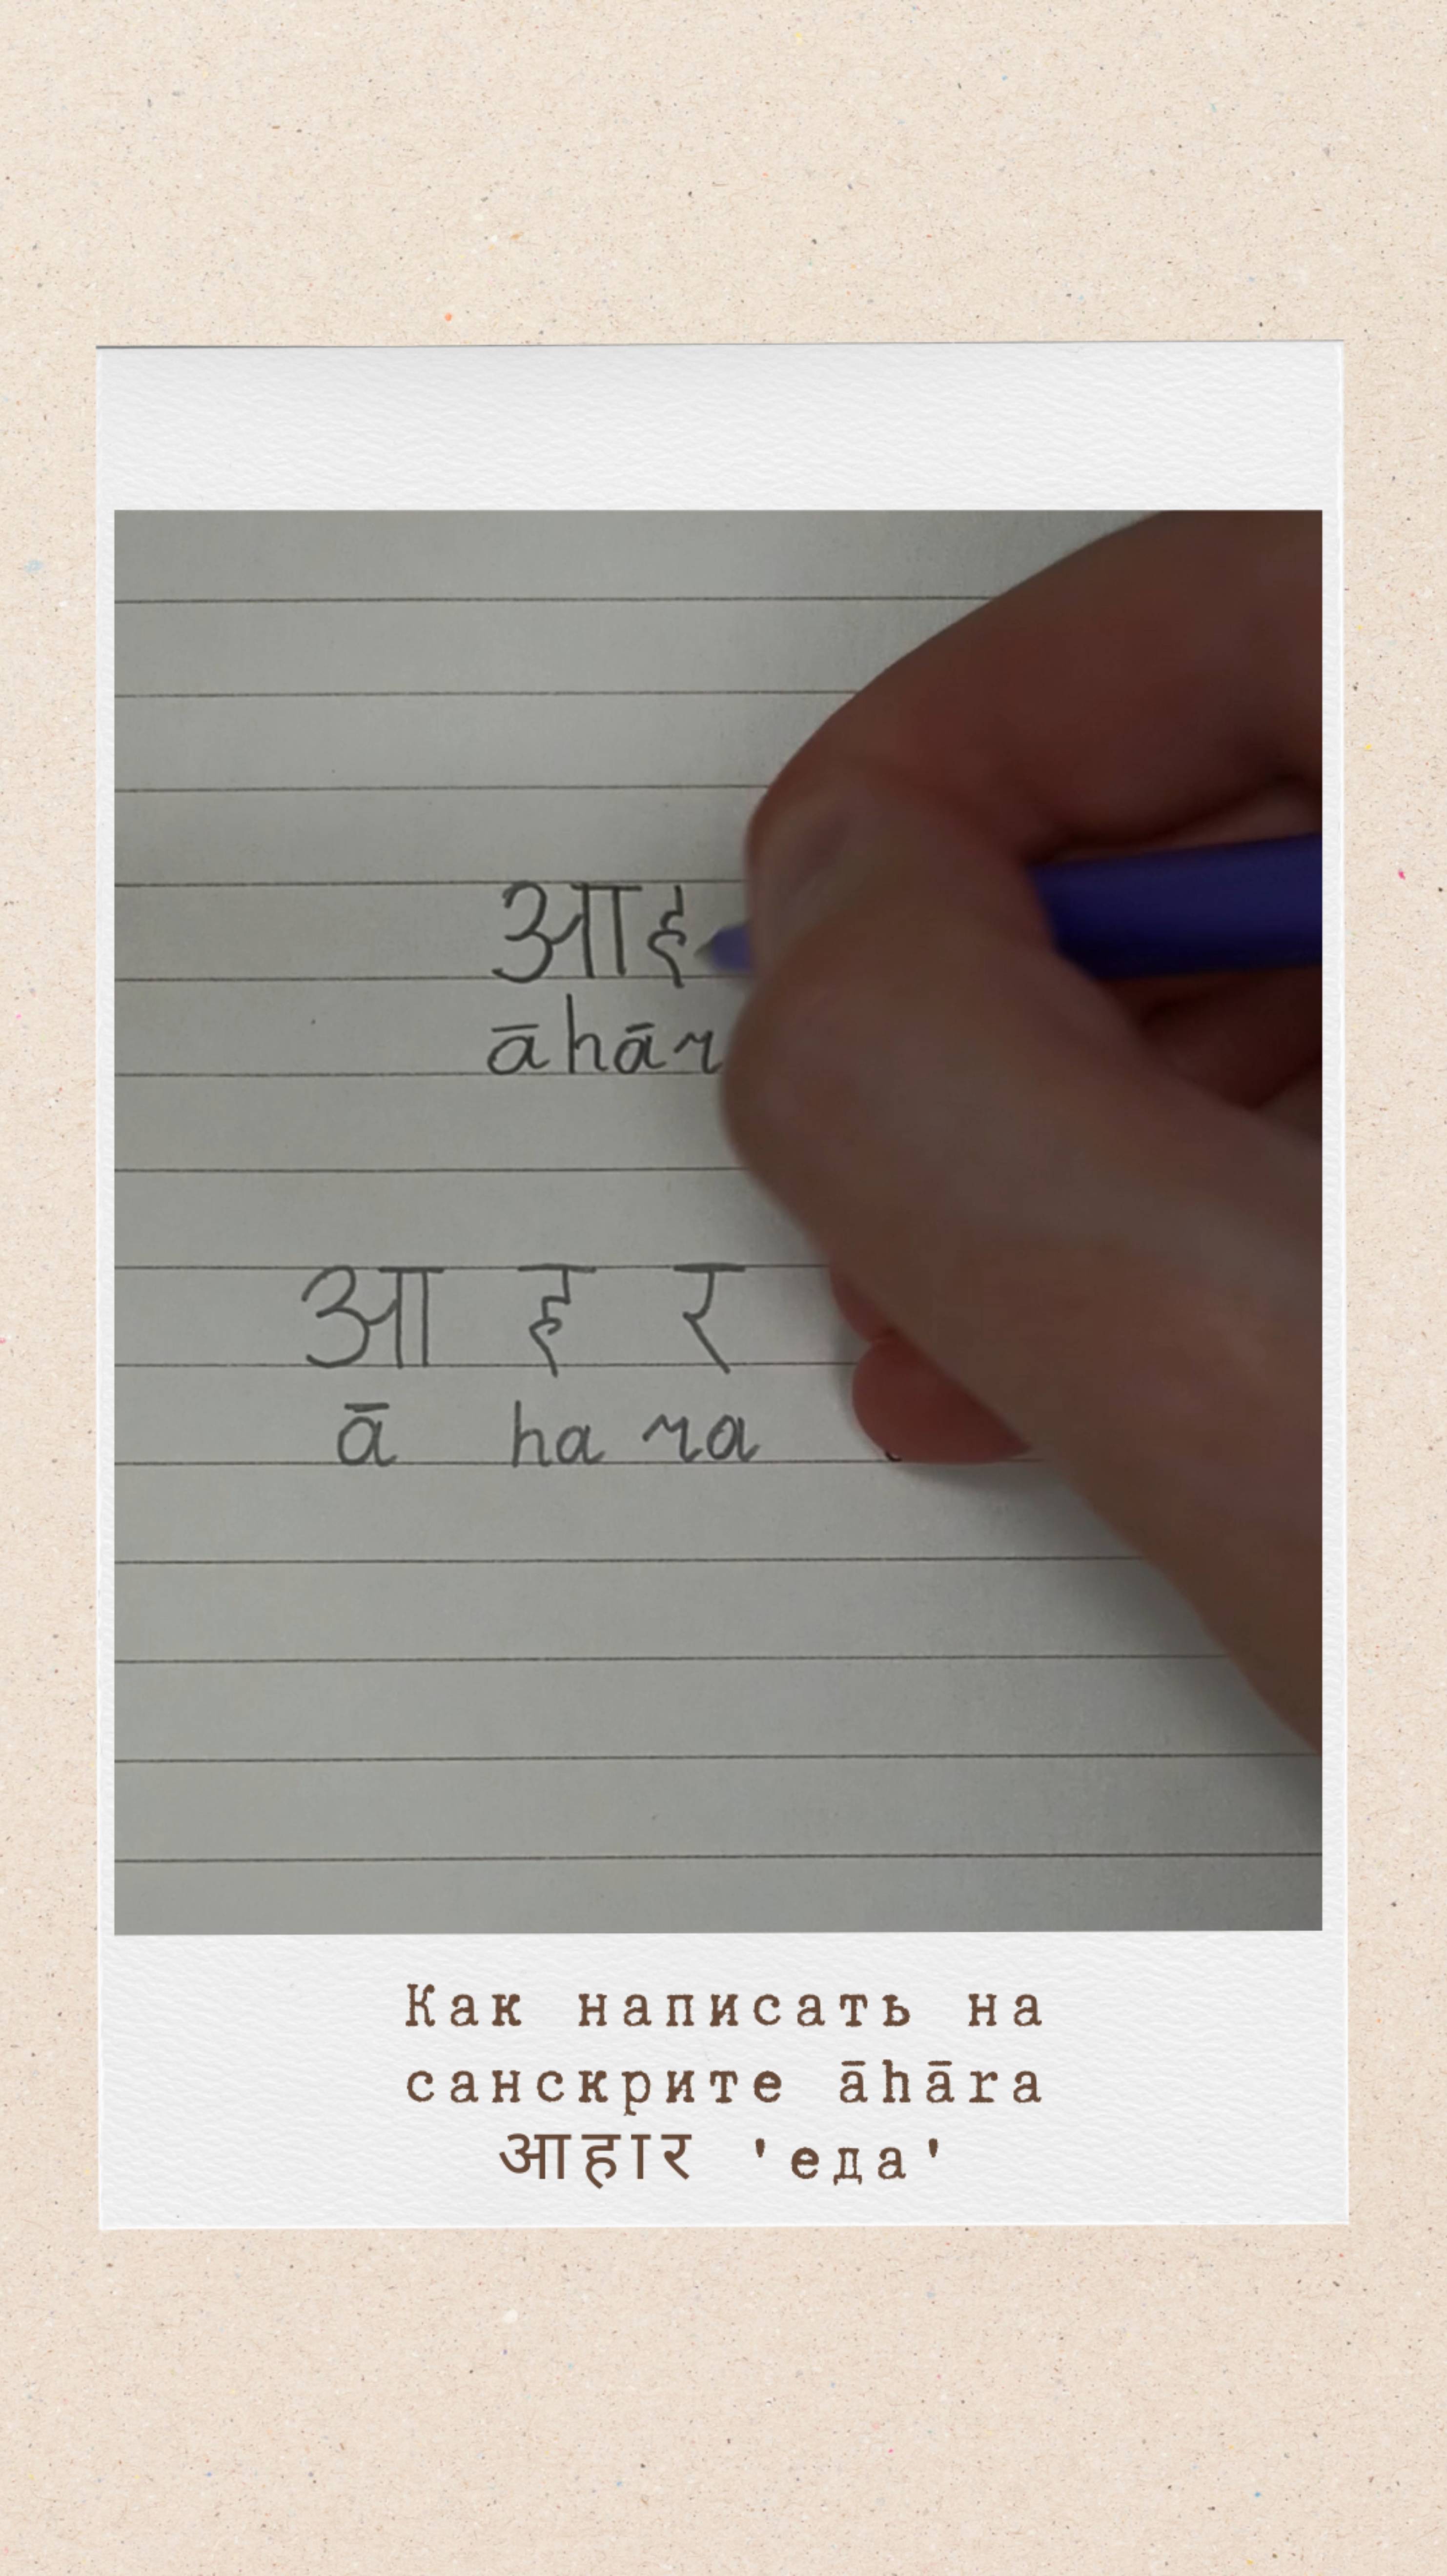 आह
āhār
आ ह र
ā ha ra
Как написать на
санскрите āhāra
आहार 'еда'